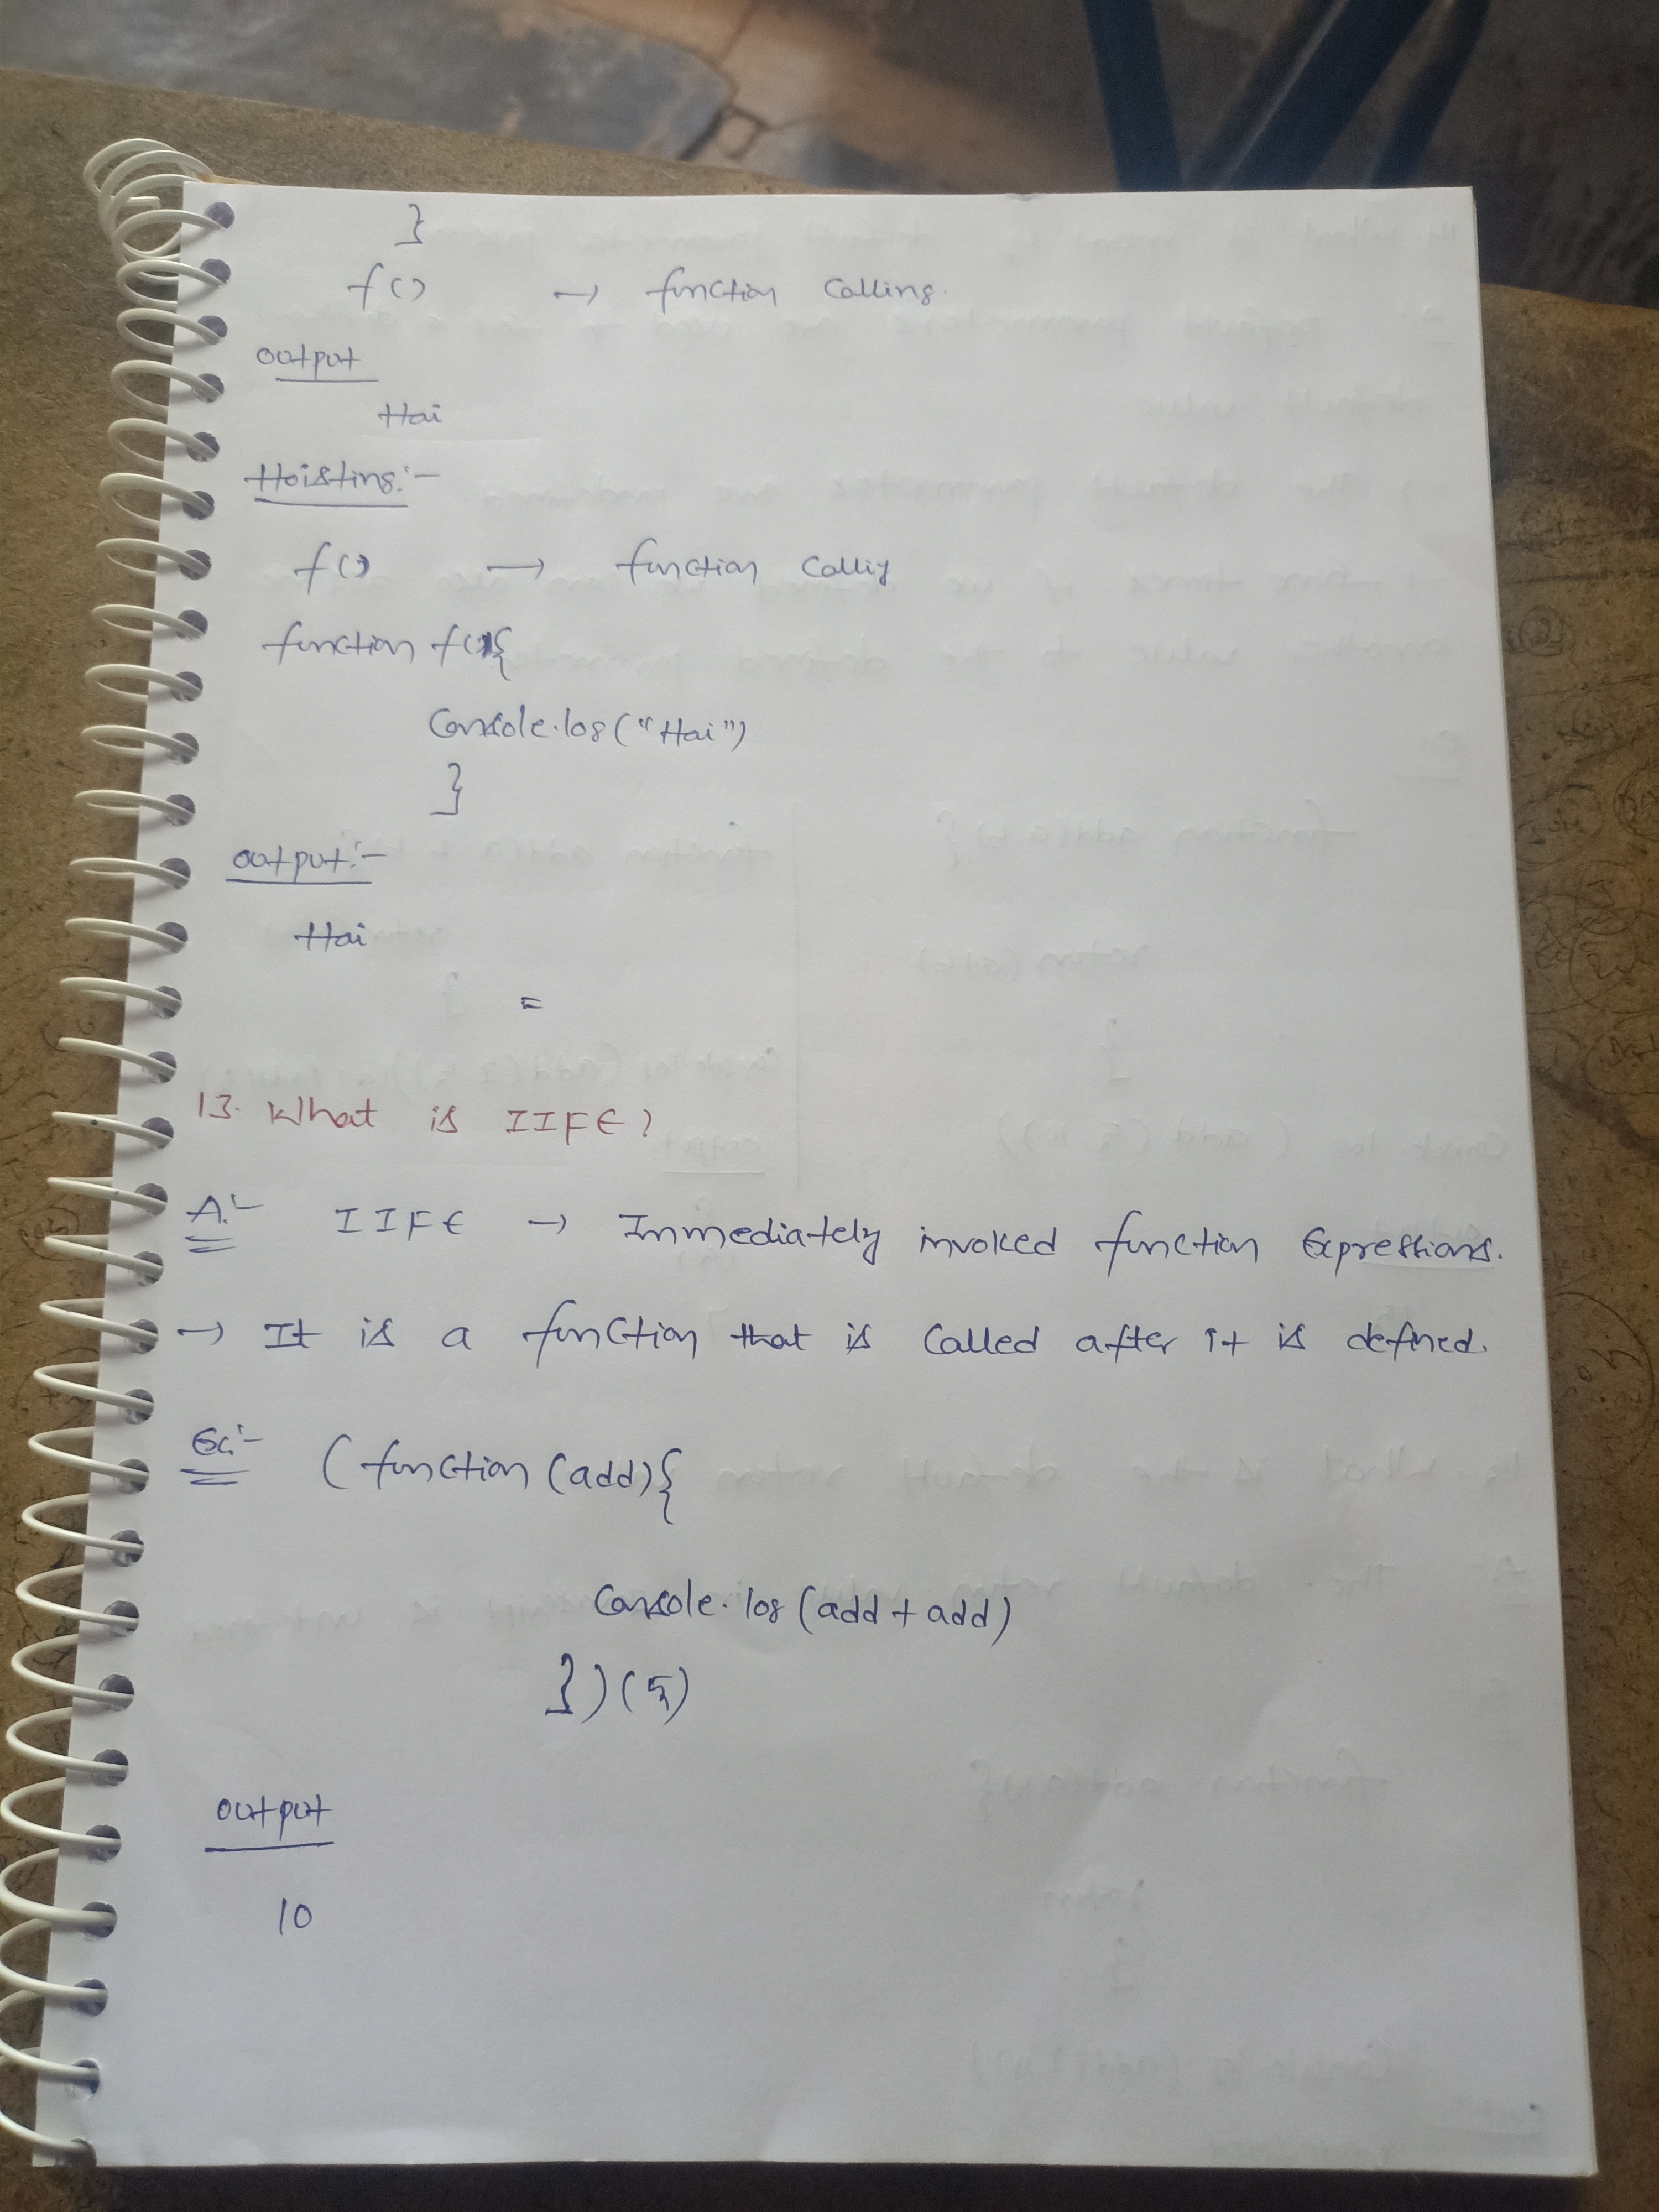 }
f() → function Calling.
output
Hai
Hoisting:-
f() → function Calliy
function f(){
Console.log("Hai")
}
output:-
Hai
=
13. What is IIFE?
A:- IIFE → Immediately invoked function Expressions.
→ It is a function that is Called after it is defined.
Ex:- (function (add){
Console.log(add+add)
})(5)
output
10